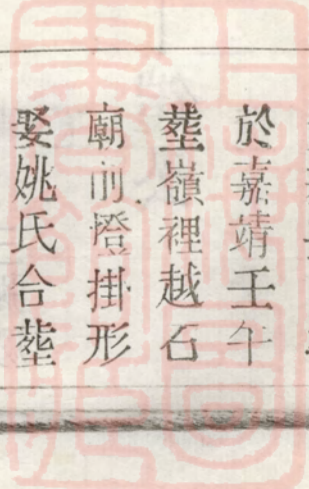 於嘉靖壬午
塟嶺裡越石
廟前燈掛形
娶姚氏合塟